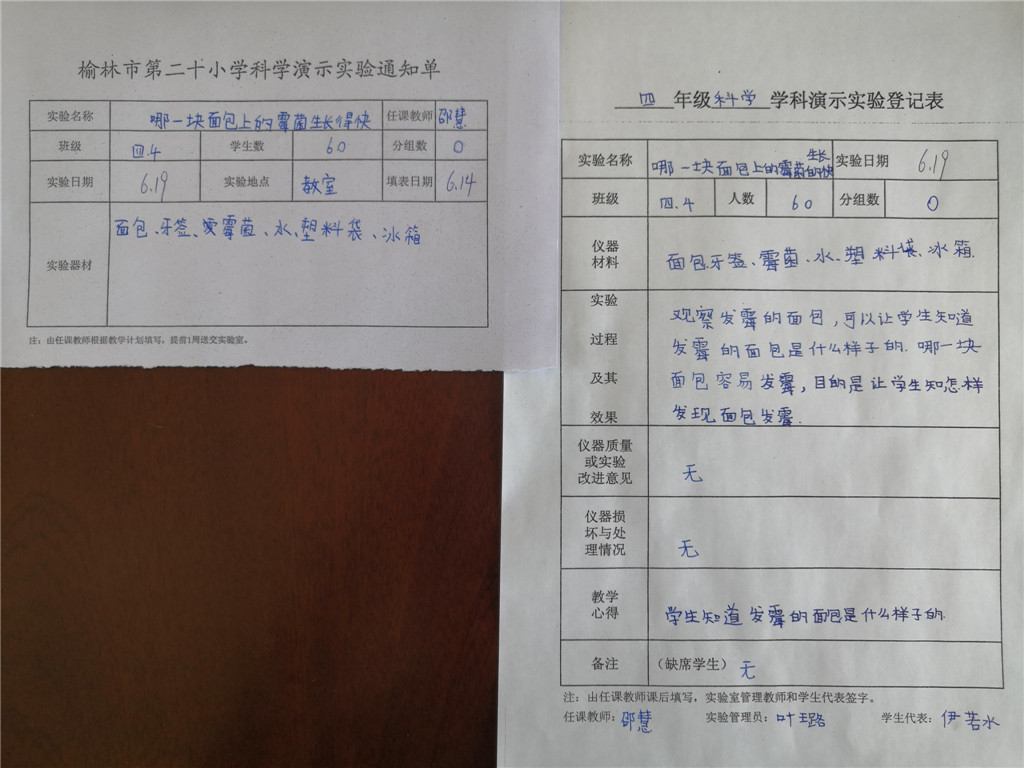 榆林市第二十小学科学演示实验通知单
实验名称 哪一块面包上的霉菌生长得快 任课教师 邵慧
班级 四.4 学生数 60 分组数 0
实验日期 6.19 实验地点 教室 填表日期 6.14
实验器材 面包、牙签、发霉菌、水、塑料袋、冰箱
注：由任课教师根据教学计划填写，提前1周送交实验室。
四 年级 科学 学科演示实验登记表
实验名称 哪一块面包上的霉菌生长的快 实验日期 6.19
班级 四.4 人数 60 分组数 0
仪器
材料
面包.牙签、霉菌、水、塑料袋、冰箱.
实验
过程
及其
效果
观察发霉的面包,可以让学生知道
发霉的面包是什么样子的.哪一块
面包容易发霉,目的是让学生知怎样
发现面包发霉.
仪器质量
或实验
改进意见
无
仪器损
坏与处
理情况
无
教学
心得
学生知道发霉的面包是什么样子的.
备注 （缺席学生） 无
注：由任课教师课后填写，实验室管理教师和学生代表签字。
任课教师：邵慧 实验管理员：叶珏路 学生代表：伊若水